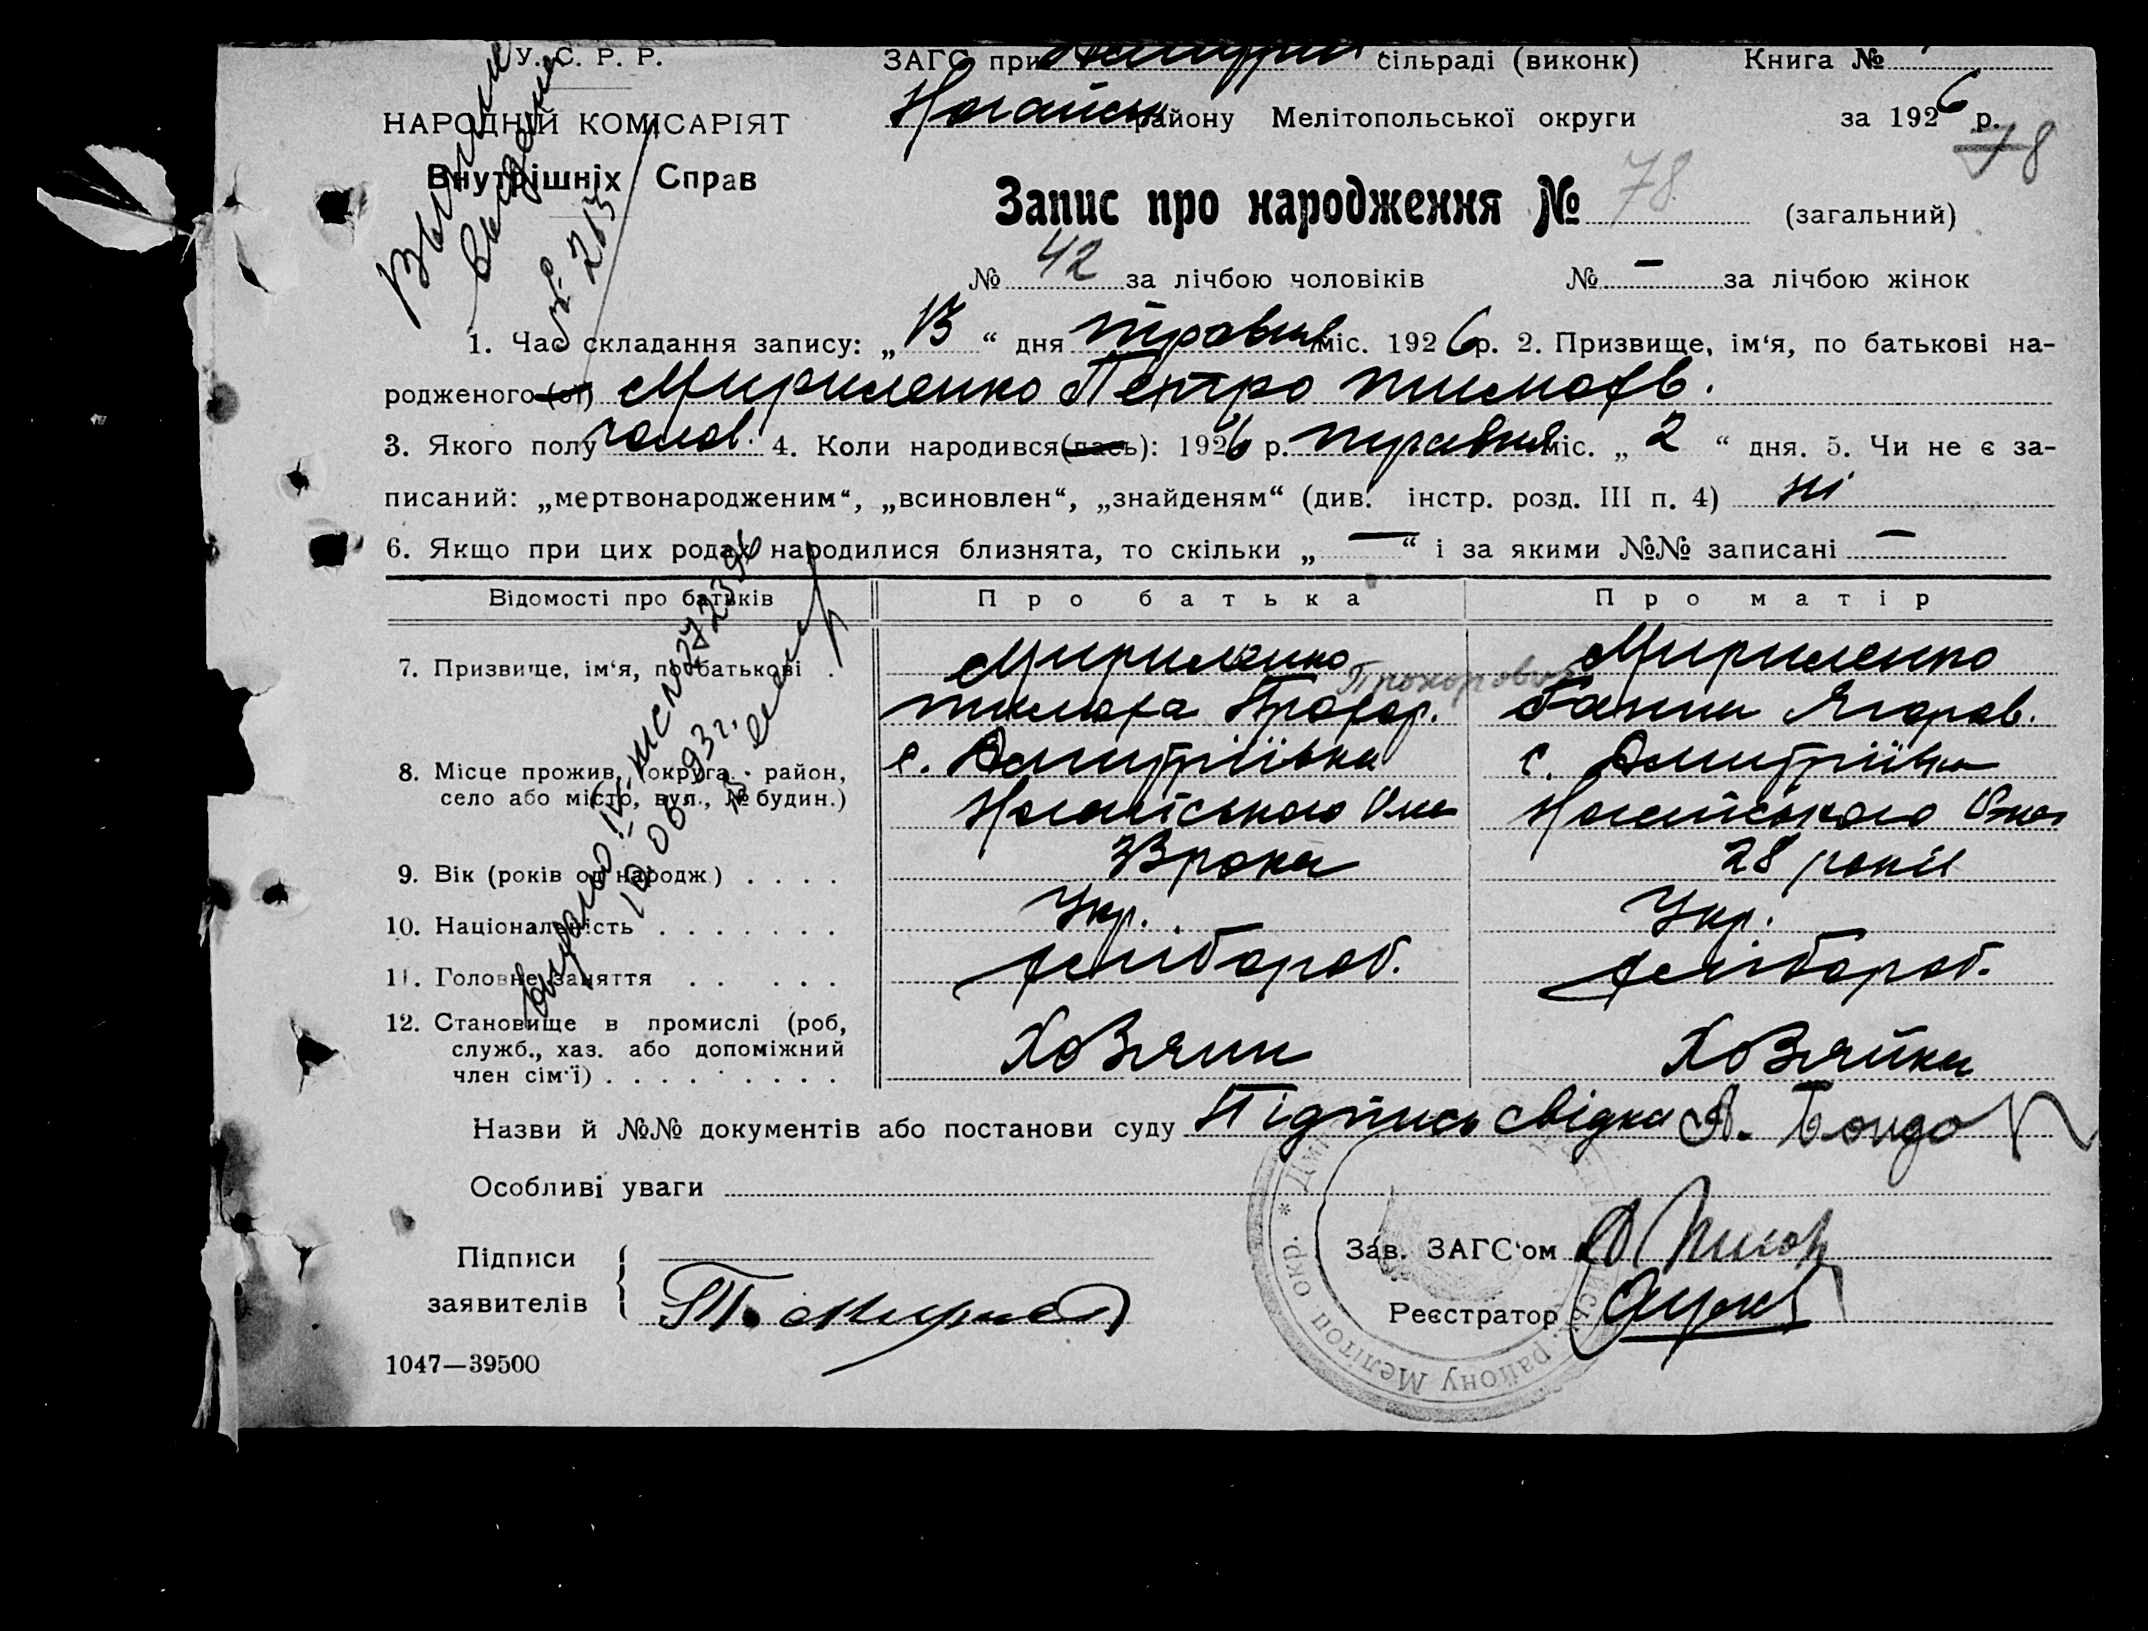 У. С. Р. Р.
НАРОДНІЙ КОМІСАРІЯТ
Внутрішніх Справ
ЗАГС при сільраді (виконк) Книга №
Ногайськ району Мелітопольської округи за 1926 р.
78
Запис про народження № 78 (загальний)
№ 42 за лічбою чоловіків № — за лічбою жінок
№ 213
1. Час складання запису: „13“ дня травня міс. 1926 р. 2. Призвище, ім‘я, по батькові на-
родженого (ої) Мириленко Петро Тимофів.
3. Якого полу чолов. 4. Коли народився(лась): 1926 р. травня міс. „ 2 “ дня. 5. Чи не є за-
писаний: „мертвонародженим“, „всиновлен“, „знайденям“ (див. інстр. розд. III п. 4) ні
6. Якщо при цих родах народилися близнята, то скільки „ — “ і за якими №№ записані —
Відомості про батьків Про батька Про матір
7. Призвище, ім‘я, по батькові . Мириленко Мириленко
Прохорович
Тимофа Прохор. Ганна Ягоров.
8. Місце прожив. (округа, район, с. Дмитріївка с. Дмитріївка
село або місто, вул., № будин.) Ногайського Ногайського
9. Вік (років од народж) . . . . 33 роки 28 років
10. Національність . . . . . . . Укр. Укр.
11. Головне заняття . . . . . хлібороб. хлібороб.
12. Становище в промислі (роб,
служб., хаз. або допоміжний Хозяин Хозяйка
член сім‘ї) . . . . . . . . .
10.06.93 г.
Назви й №№ документів або постанови суду Підпись свідка А. Бондо
Особливі уваги
Підписи
заявителів
Зав. ЗАГС‘ом
Реєстратор
району Мелітоп окр. * Дми
1047—39500